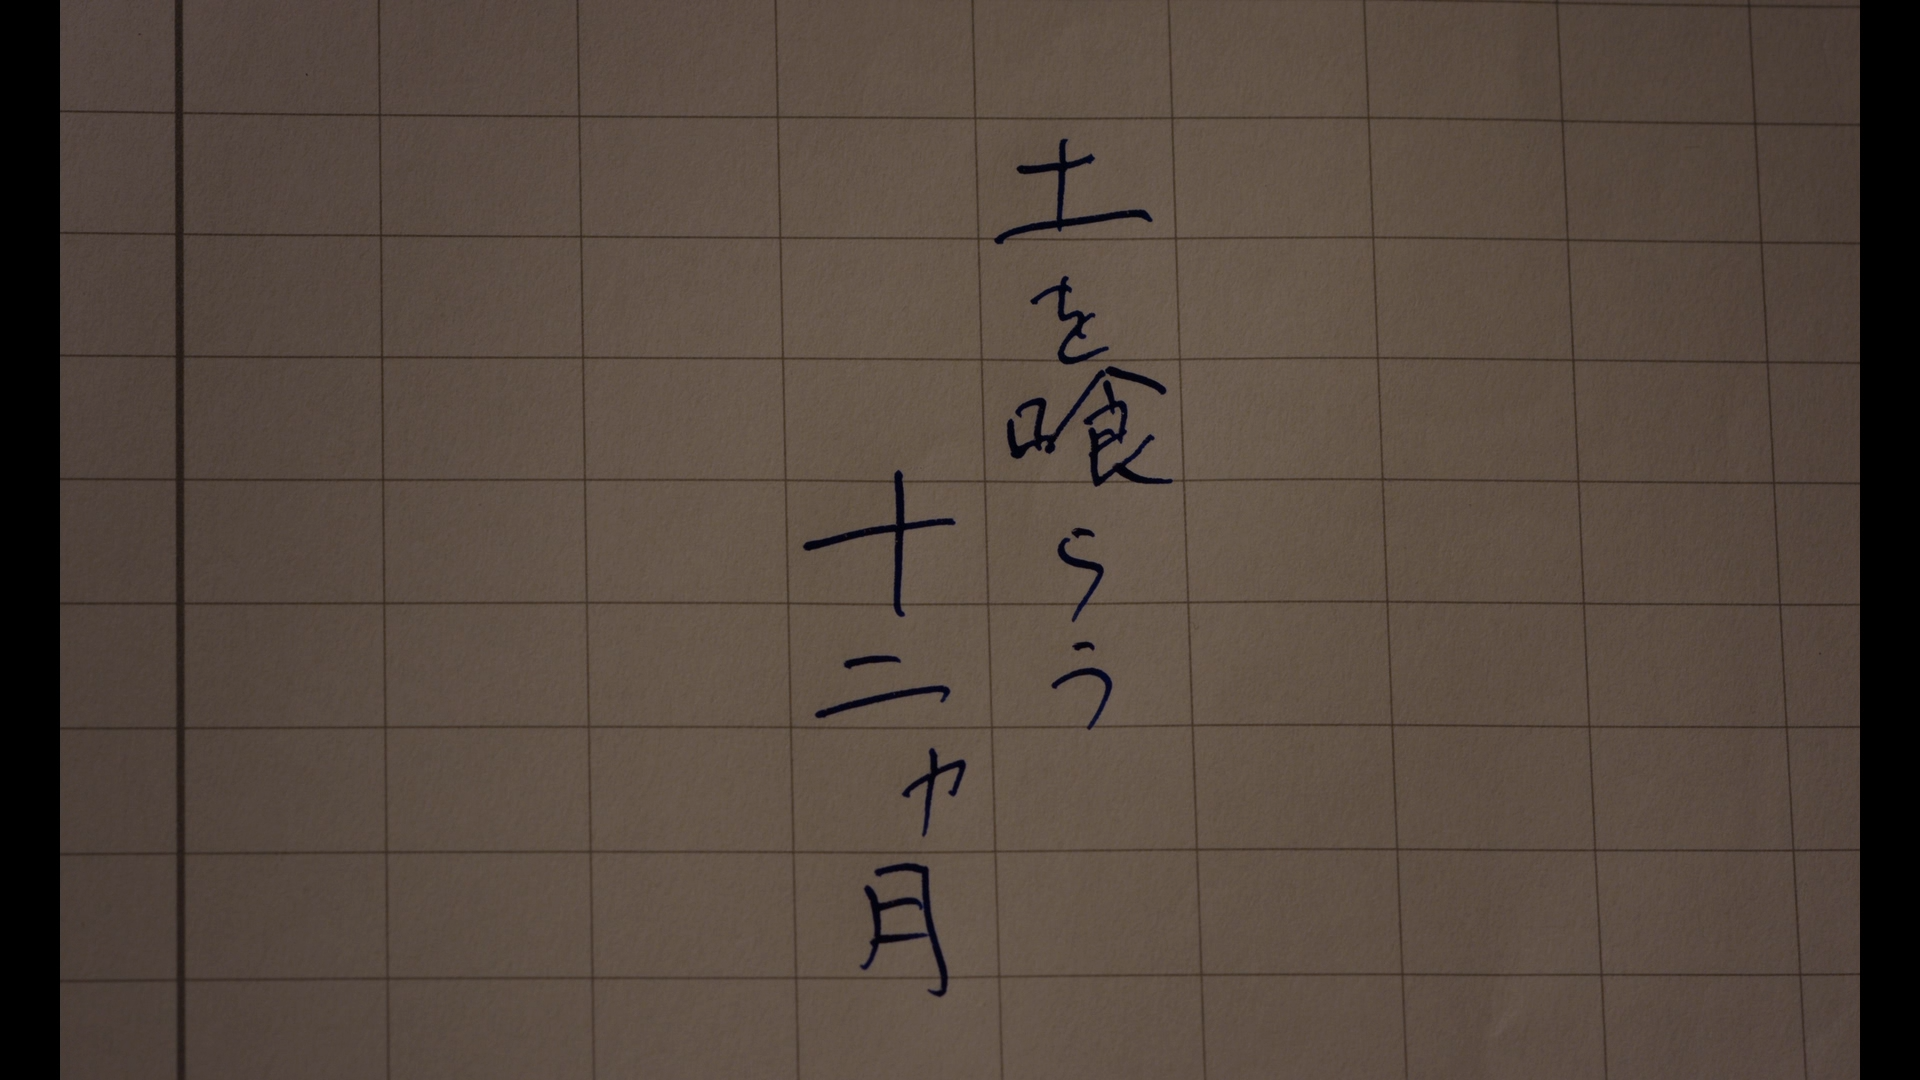 土を喰らう
十二ヶ月